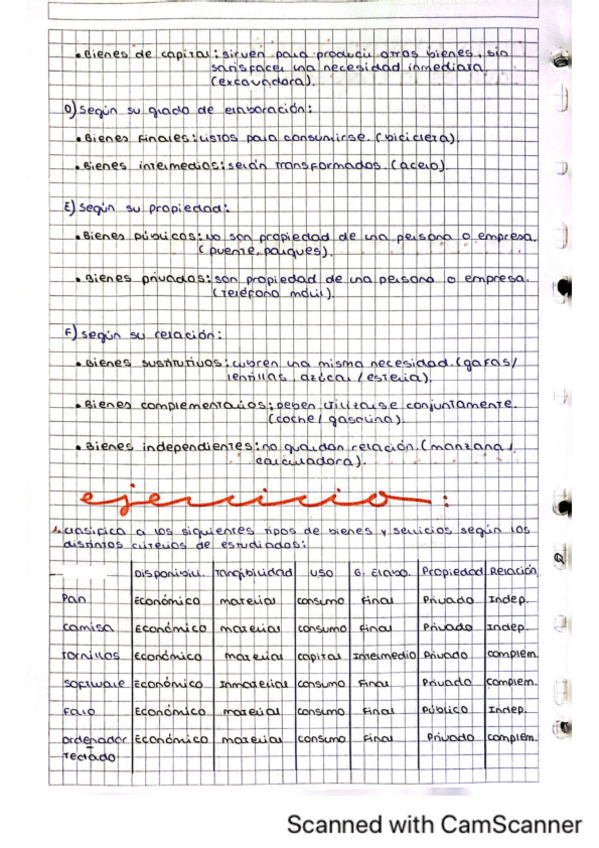 • Bienes de capital: sirven para producir otros bienes, sin
satisfacer una necesidad inmediata
(excavadora).
D) Según su grado de elaboración:
• Bienes finales: listos para consumirse. (bicicleta).
• Bienes intermedios: serán transformados. (acero)
E) Según su propiedad:
• Bienes públicos: no son propiedad de una persona o empresa.
(puente, parques).
• Bienes privados: son propiedad de una persona o empresa.
(teléfono móvil).
F) según su relación:
• Bienes sustitutivos: cubren una misma necesidad. (gafas/
lentillas, azúcar/estevia).
• Bienes complementarios: deben utilizarse conjuntamente.
(coche/gasolina).
• Bienes independientes: no guardan relación. (manzana/
calculadora).
ejercicio:
1. clasifica a los siguientes tipos de bienes y servicios según los
distintos criterios de estudiados:
Disponibili. Tangibilidad USO G. Elabo. Propiedad Relación
Pan Económico material consumo Final Privado Indep.
camisa Económico material consumo Final Privado Indep.
Tornillos Económico material capital Intermedio Privado complem.
software Económico Inmaterial consumo Final Privado complem.
Faro Económico material consumo Final Público Indep.
ordenador Económico material consumo Final Privado complem.
-
Teclado
Scanned with CamScanner